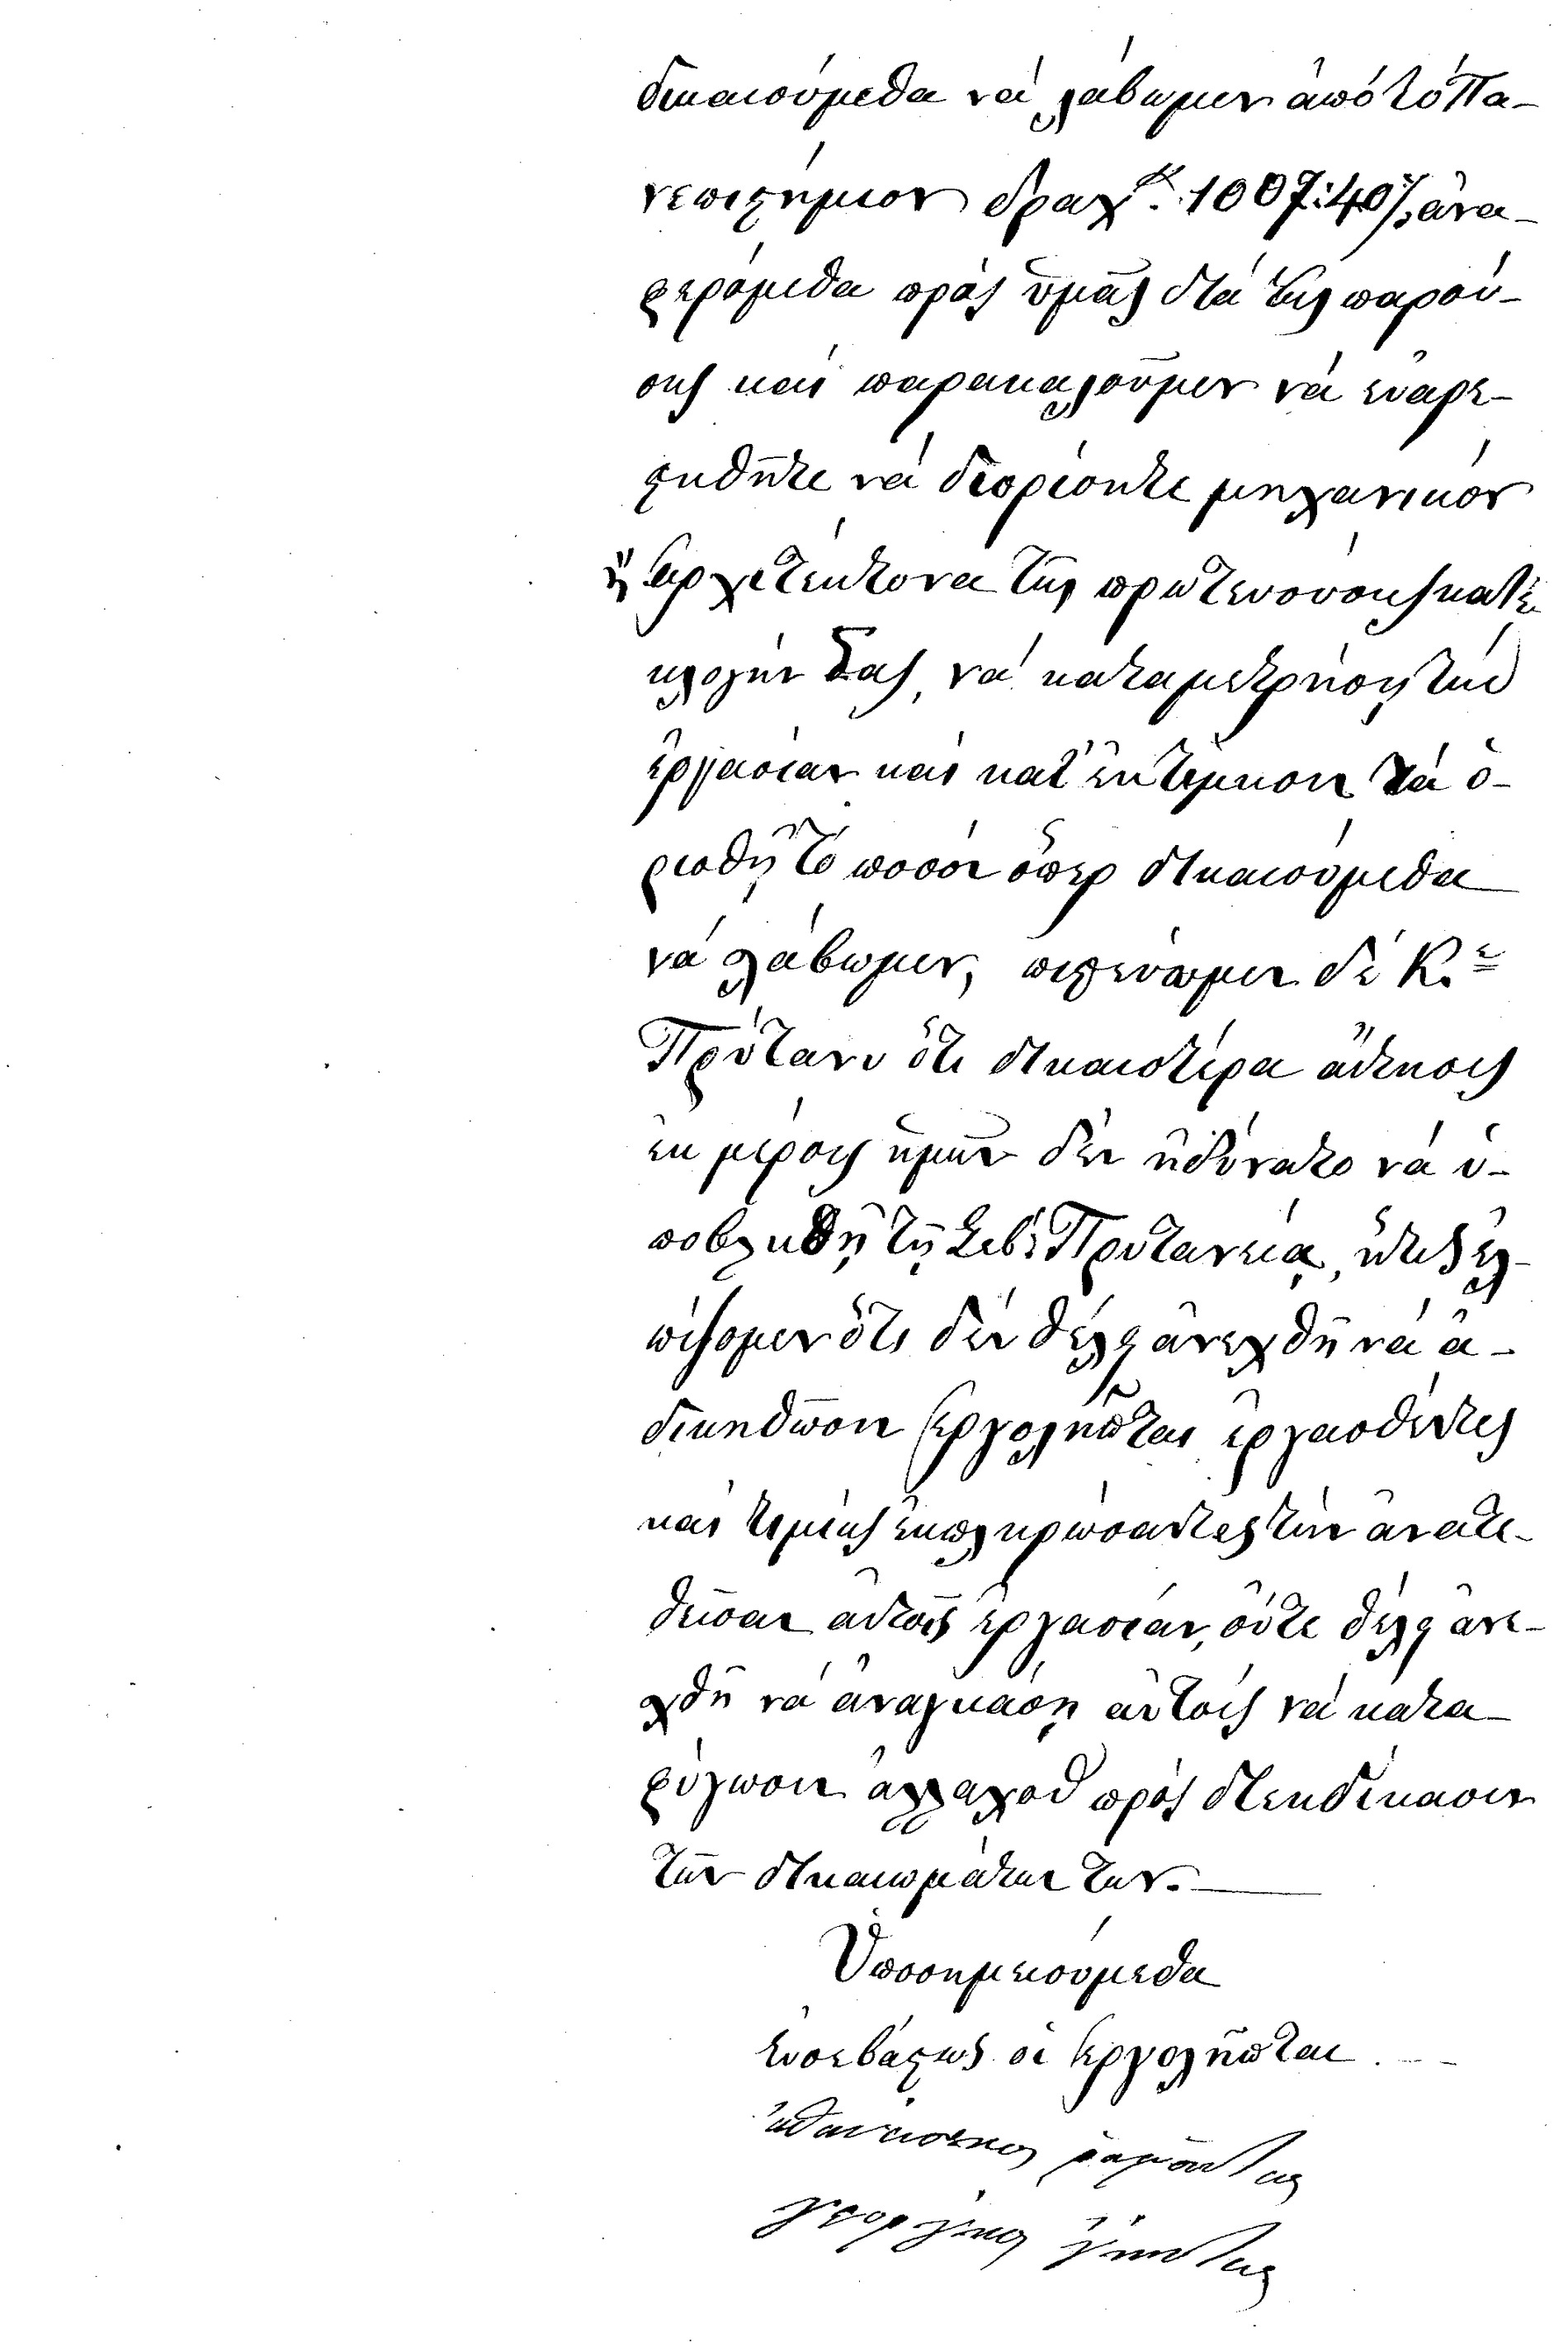 δικαιούμεθα νά λάβωμεν ἀπό τό Πα-
νεπιστήμιον δραχ. 1007:40%, ἀνα-
φερόμεθα πρός ὑμᾶς διά τῆς παρού-
σης καί παρακαλοῦμεν νά εὐαρε-
στηθῆτε νά διορίσητε μηχανικόν
ἤ ἀρχιτέκτονα τῆς πρωτευούσης κατ' ἐ-
κλογήν Σας, νά καταμετρήσῃ τήν
ἐργασίαν καί κατ' ἐκτίμησιν νά ὁ-
ρισθῇ τό ποσόν ὅπερ δικαιούμεθα
νά λάβωμεν, πιστεύομεν δέ Κ.ε
Πρύτανι ὅτι δικαιοτέρα αἴτησις
ἐκ μέρους ἡμῶν δέν ἠδύνατο νά ὑ-
ποβληθῇ τῇ Σεβ: Πρυτανείᾳ, ἥτις ἐλ-
πίζομεν ὅτι δέν θέλει ἀνεχθῆ νά ἀ-
δικηθῶσιν ἐργολῆπται ἐργασθέντες
καί τιμίως ἐκπληρώσαντες τήν ἀνατε-
θεῖσαν αὐτοῖς ἐργασίαν, οὔτε θέλει ἀνε-
χθῆ νά ἀναγκάσῃ αὐτούς νά κατα-
φύγωσιν ἀλλαχοῦ πρός διεκδίκησιν
τῶν δικαιωμάτων των.
Ὑποσημειούμεθα
Εὐσεβάστως οἱ ἐργολῆπται
γεοργιος